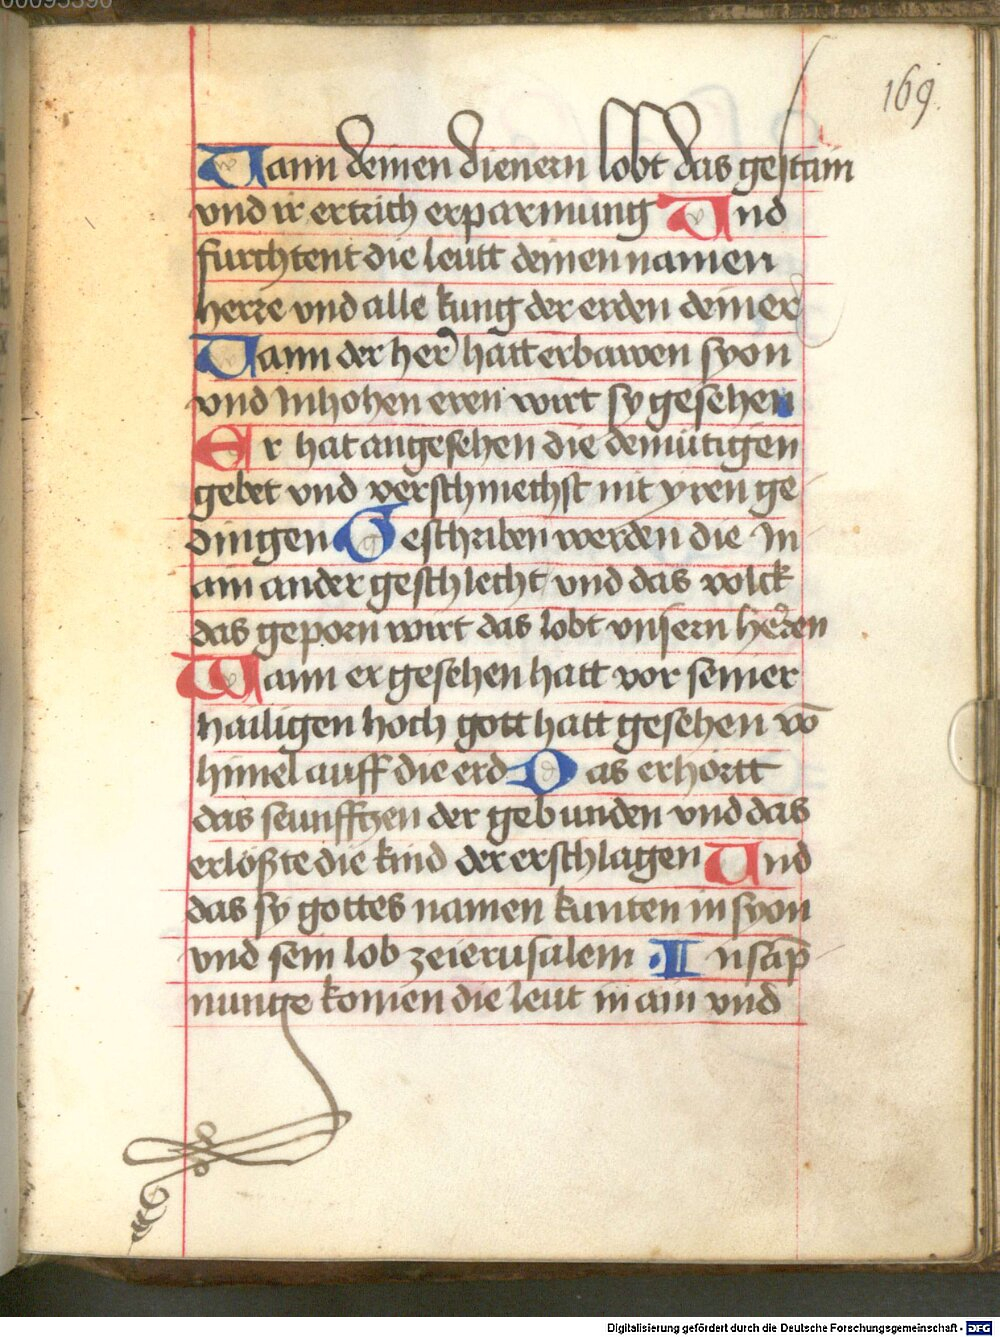 00095596
169.
Wann deinen dienern lobt das gestain
vnd ir ertrich erparmung Vnd
furchtent die leutt deinen namen
herre vnd alle kung der erden deiner
Wann der her hatt erbawen syon
vnd Inhohen eren wirt sy gesehen
Er hat angesehen die demütigen
gebet vnd verschmechst nit yren ge
dingen Geschriben werden die In
ain ander geschlecht vnd das volck
das geporn wirt das lobt vnsern heren
Wann er gesehen hatt vor seiner
hailigen hoch gott hatt gesehen vō
himel auff die erd Das erhortt
das seunfftzen der gebunden vnd das
erlößte die kind der erschlagen Vnd
das sy gottes namen kunten in syon
vnd sein lob zeierusalem In sap̄
nunge komen die leut in ain vnd
Digitalisierung gefördert durch die Deutsche Forschungsgemeinschaft - DFG